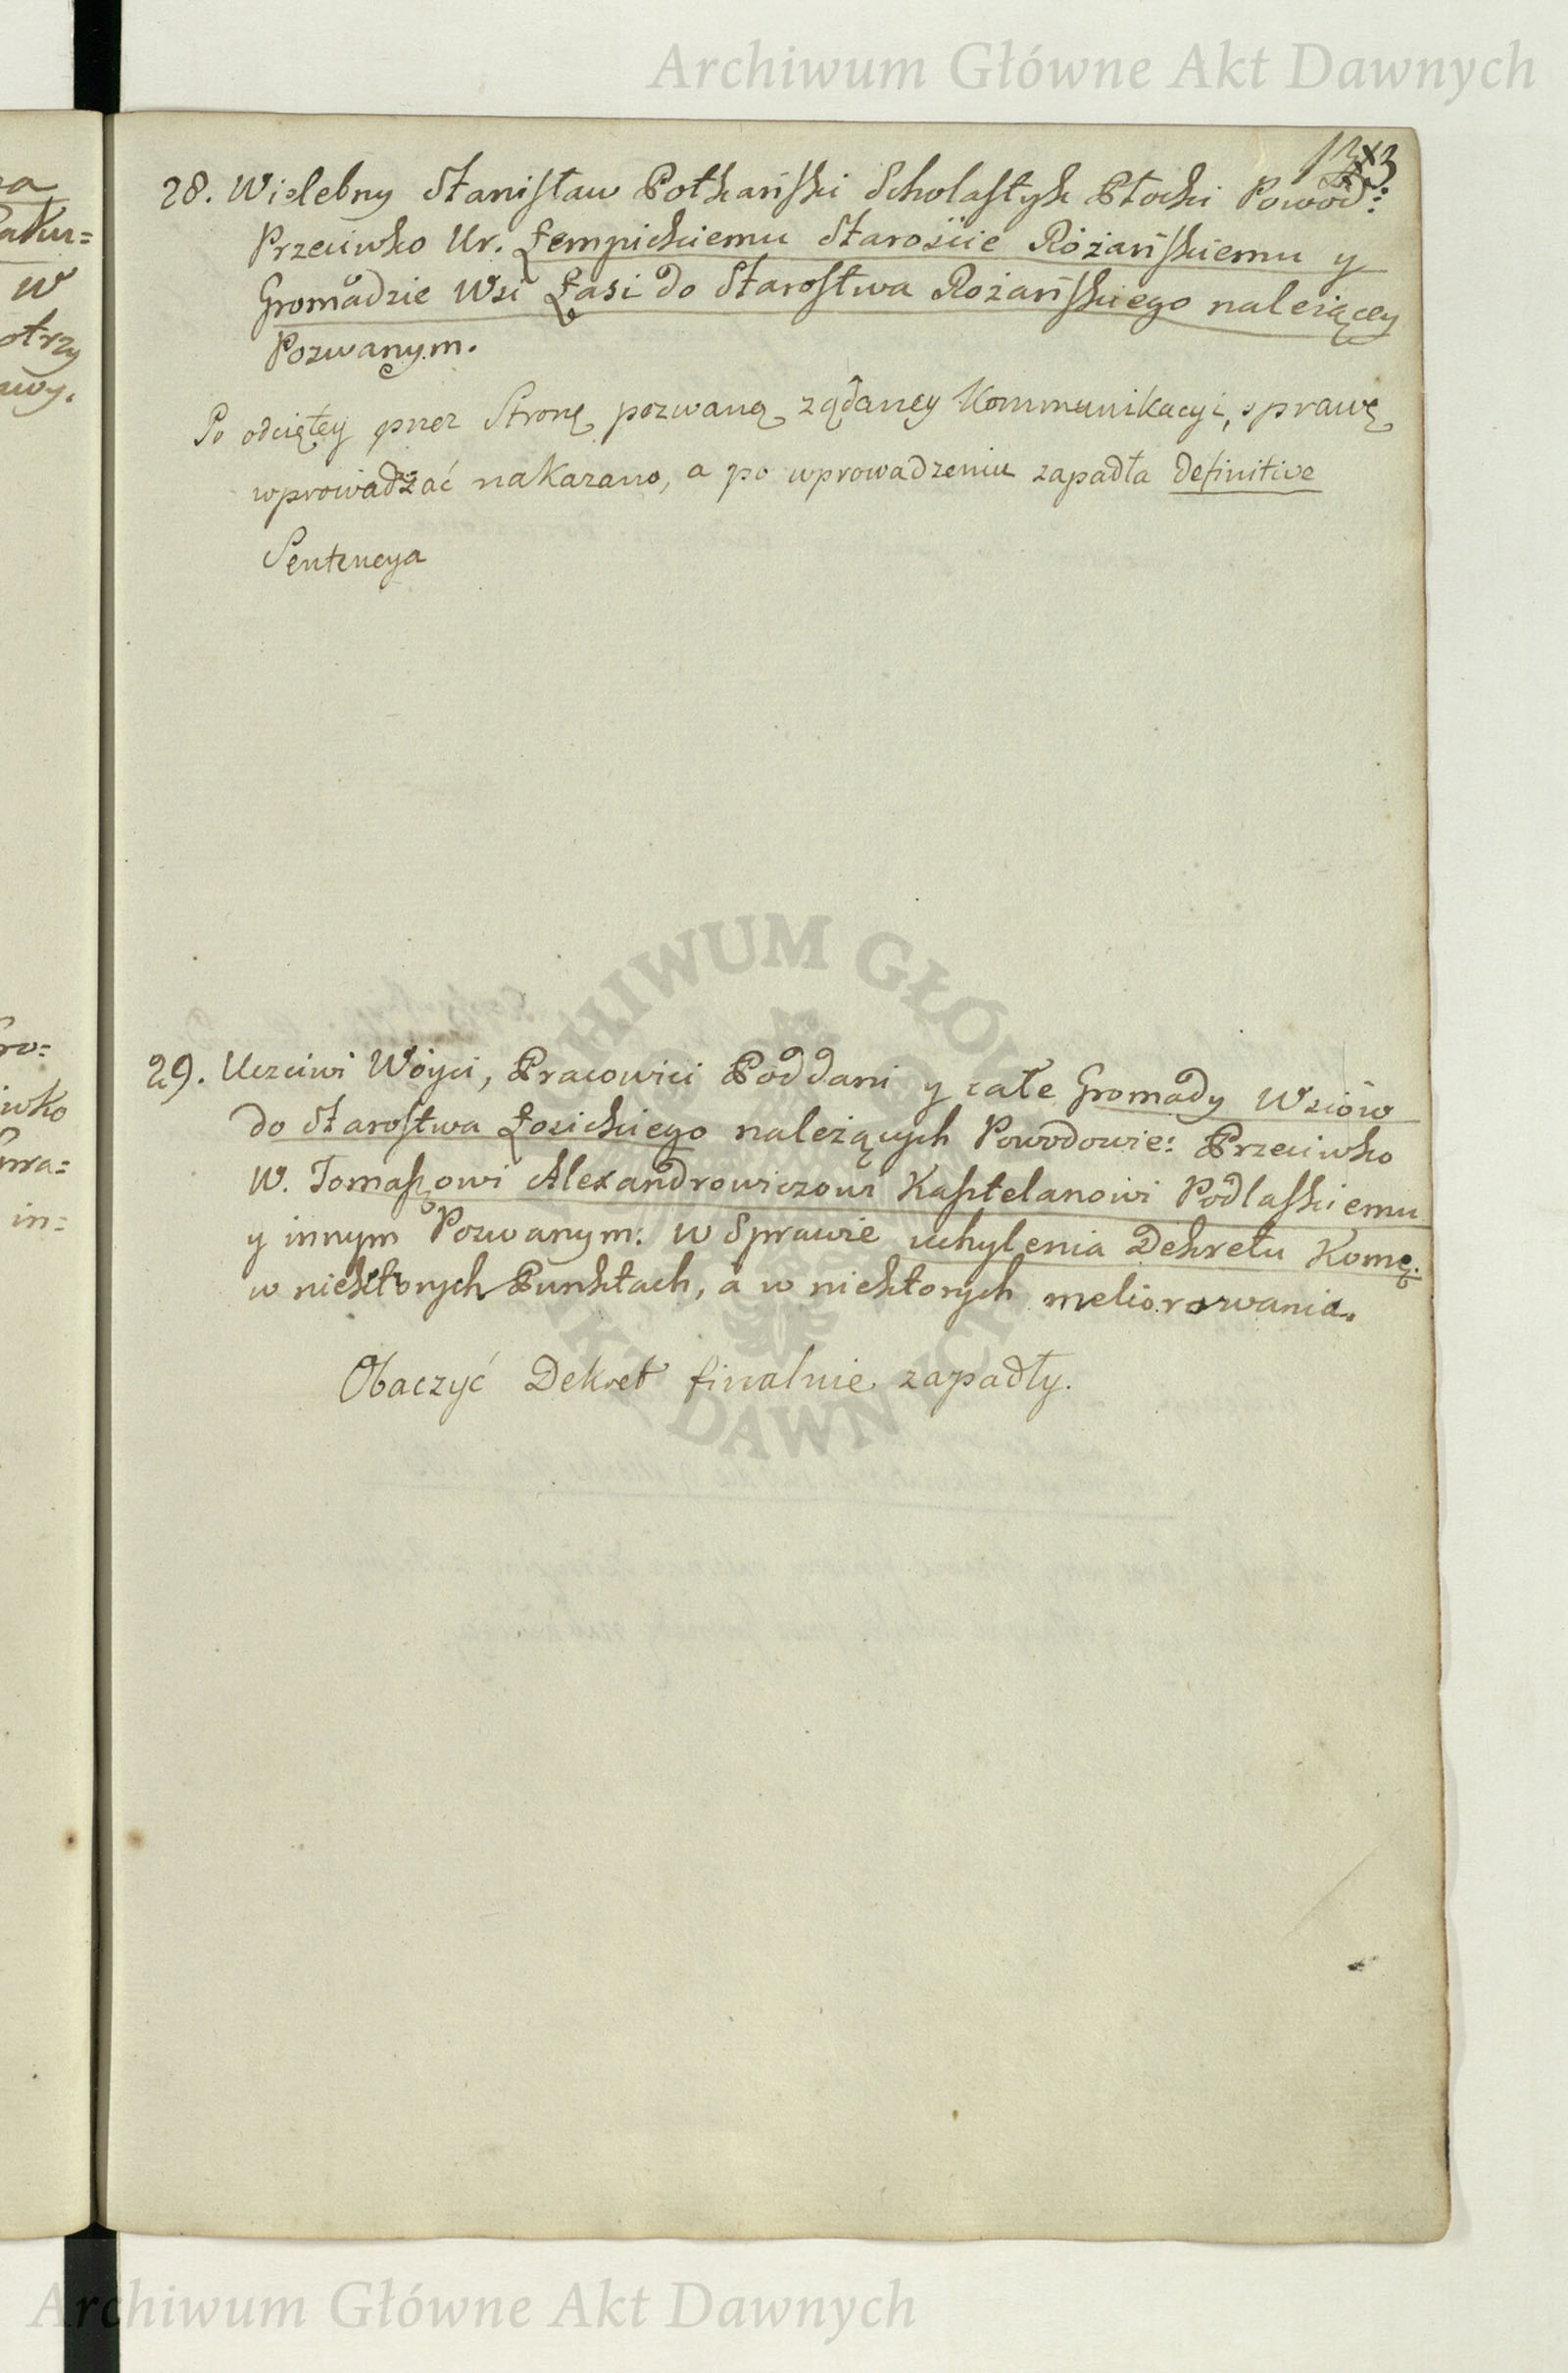 Archiwum Główne Akt Dawnych
28. Wielebny Stanisław Potkański Scholastyk Płocki Powod:
Przeciwko Ur. Łempickiemu Starościie Różańskiemu y
Gromadzie Wsi Łasi do Starostwa Rożańskiego należącey
Pozwanym.
Po odciętey przez Stronę pozwaną żądaney Kommunikacyi, sprawę
wprowadzać nakazano, a po wprowadzeniu zapadła definitive
Sentencya
29. Uczciwi Wóyci, Pracowici Poddani y całe Gromady Wsiów
do Starostwa Łosickiego należących Powodowie: Przeciwko
W. Tomaszowi Alexandrowiczowi Kasztelanowi Podlaskiemu
y innym Pozwanym: w Sprawie uchylenia Dekretu Komę.
w niektorych Punktach, a w niektorych meliorowania.
Obaczyć Dekret finalnie zapadły.
ARCHIWUM GŁÓWNE AKT DAWNYCH
Archiwum Główne Akt Dawnych